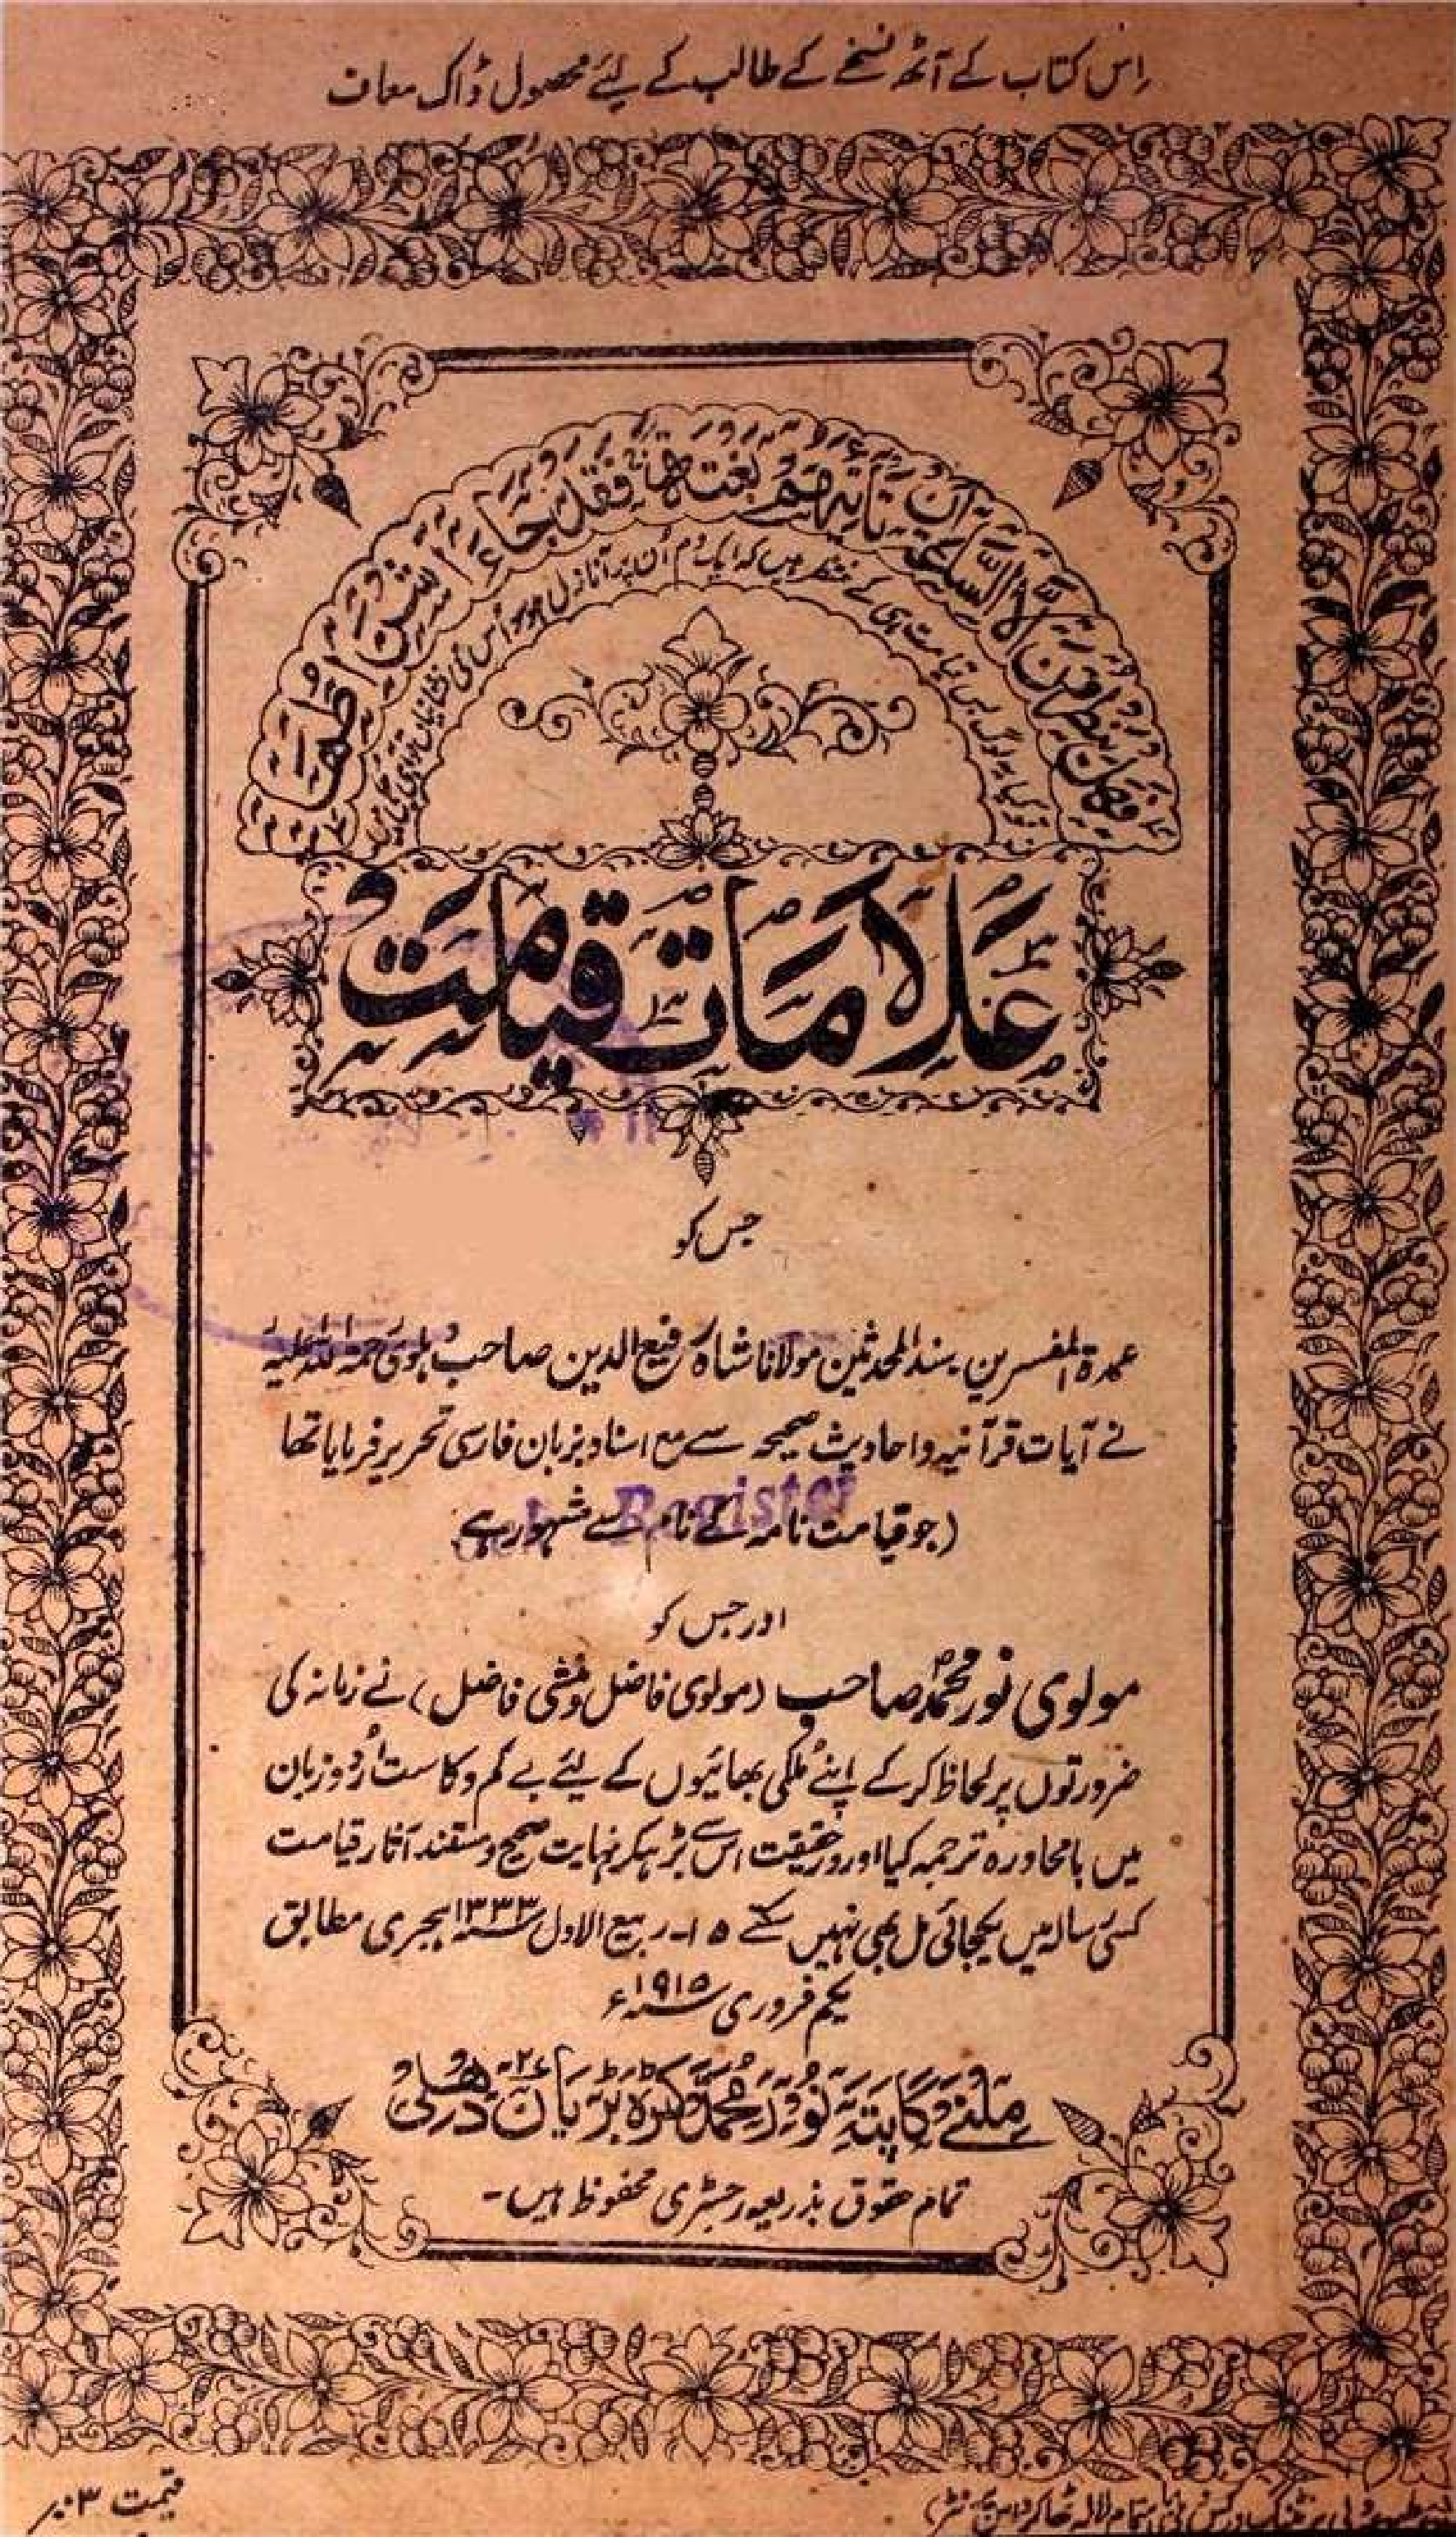 اِس کتاب کے آٹھ نسخے کے طالب کے لیئے محصول ڈاک معاف
فهل ينظرون الا الساعة ان تاتيهم بغتة فقد جاء اشراطها
یہ کیا لوگ بس قیامت ہی کے منتظر ہیں کہ ایک دم اُن پر آنازل ہو سو اُس کی نشانیاں تو آ ہی چکی ہیں
علامات قیامت
جس کو
عمدة المفسرین سند المحدثین مولانا شاہ رفیع الدین صاحب دہلوی رحمۃ اللہ علیہ
نے آیات قرآنیہ و احادیث صحیحہ سے مع اسناد بزبان فارسی تحریر فرمایا تھا
(جو قیامت نامہ کے نام سے مشہور ہے
Register
اور جس کو
مولوی نور محمد صاحب (مولوی فاضل و منشی فاضل) نے زمانہ کی
ضرورتوں پر لحاظ کر کے اپنے مُلکی بھائیوں کے لیئے بے کم و کاست اُردو زبان
میں بامحاورہ ترجمہ کیا اور درحقیقت اس سے بڑہکر نہایت صحیح و مستند آثار قیامت
کسی رسالہ میں یکجائی مل بھی نہیں سکتے ۱۵۔ ربیع الاول ۱۳۳۳ ہجری مطابق
یکم فروری ۱۹۱۵ء
ملنے کا پتہ نور محمد کٹرہ بڑیان دہلی
تمام حقوق بذریعہ رجسٹری محفوظ ہیں۔
قیمت ۳
دلی پرنٹنگ ورکس دہلی باہتمام لالہ ٹھاکر داس پرنٹر